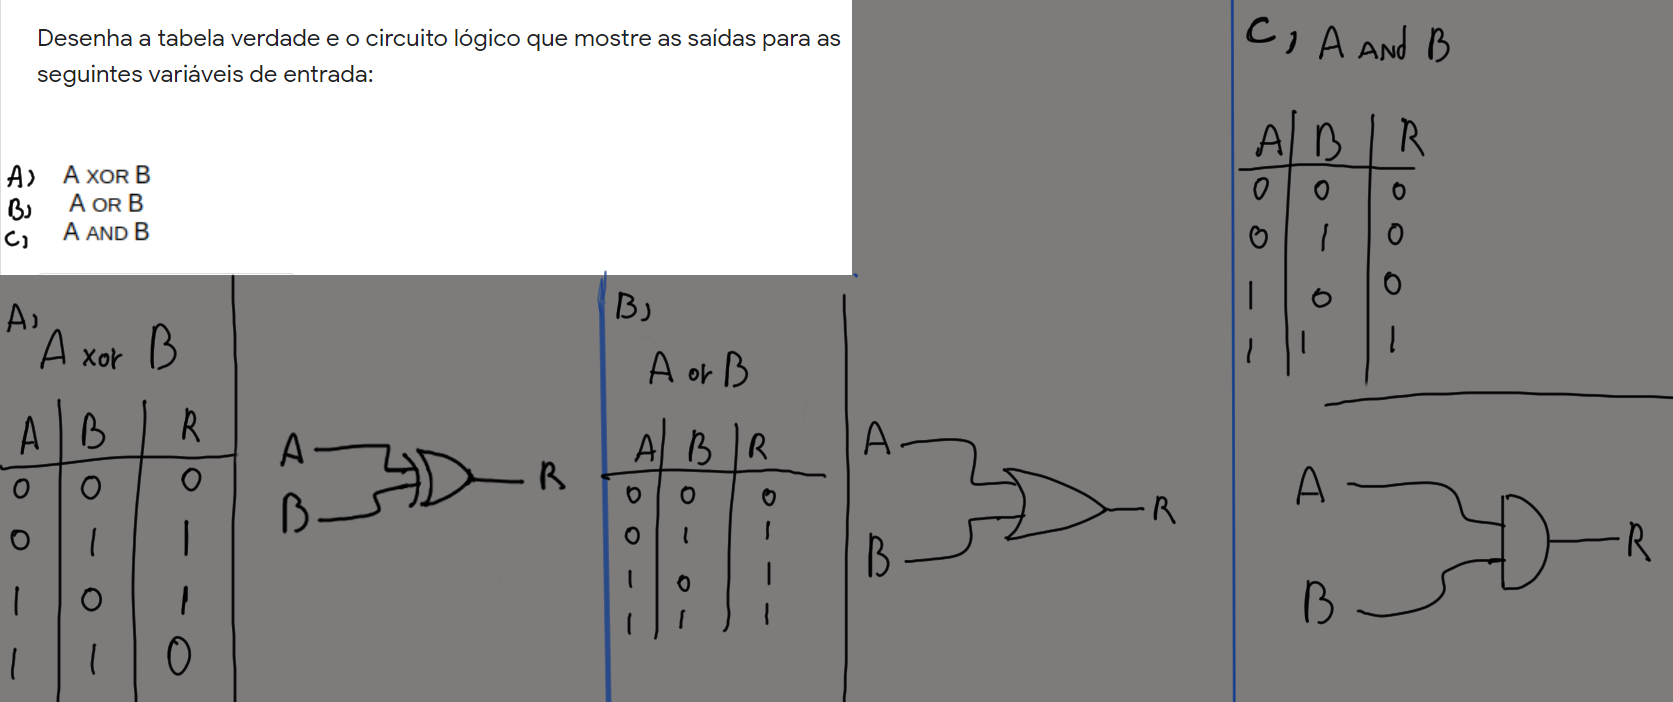 Desenha a tabela verdade e o circuito lógico que mostre as saídas para as
seguintes variáveis de entrada:
A) A XOR B
B) A OR B
C) A AND B
A)
A xor B
A B R
0 0 0
0 1 1
1 0 1
1 1 0
A
B
R
B)
A or B
A B R
0 0 0
0 1 1
1 0 1
1 1 1
A
B
R
C) A AND B
A B R
0 0 0
0 1 0
1 0 0
1 1 1
A
B
R